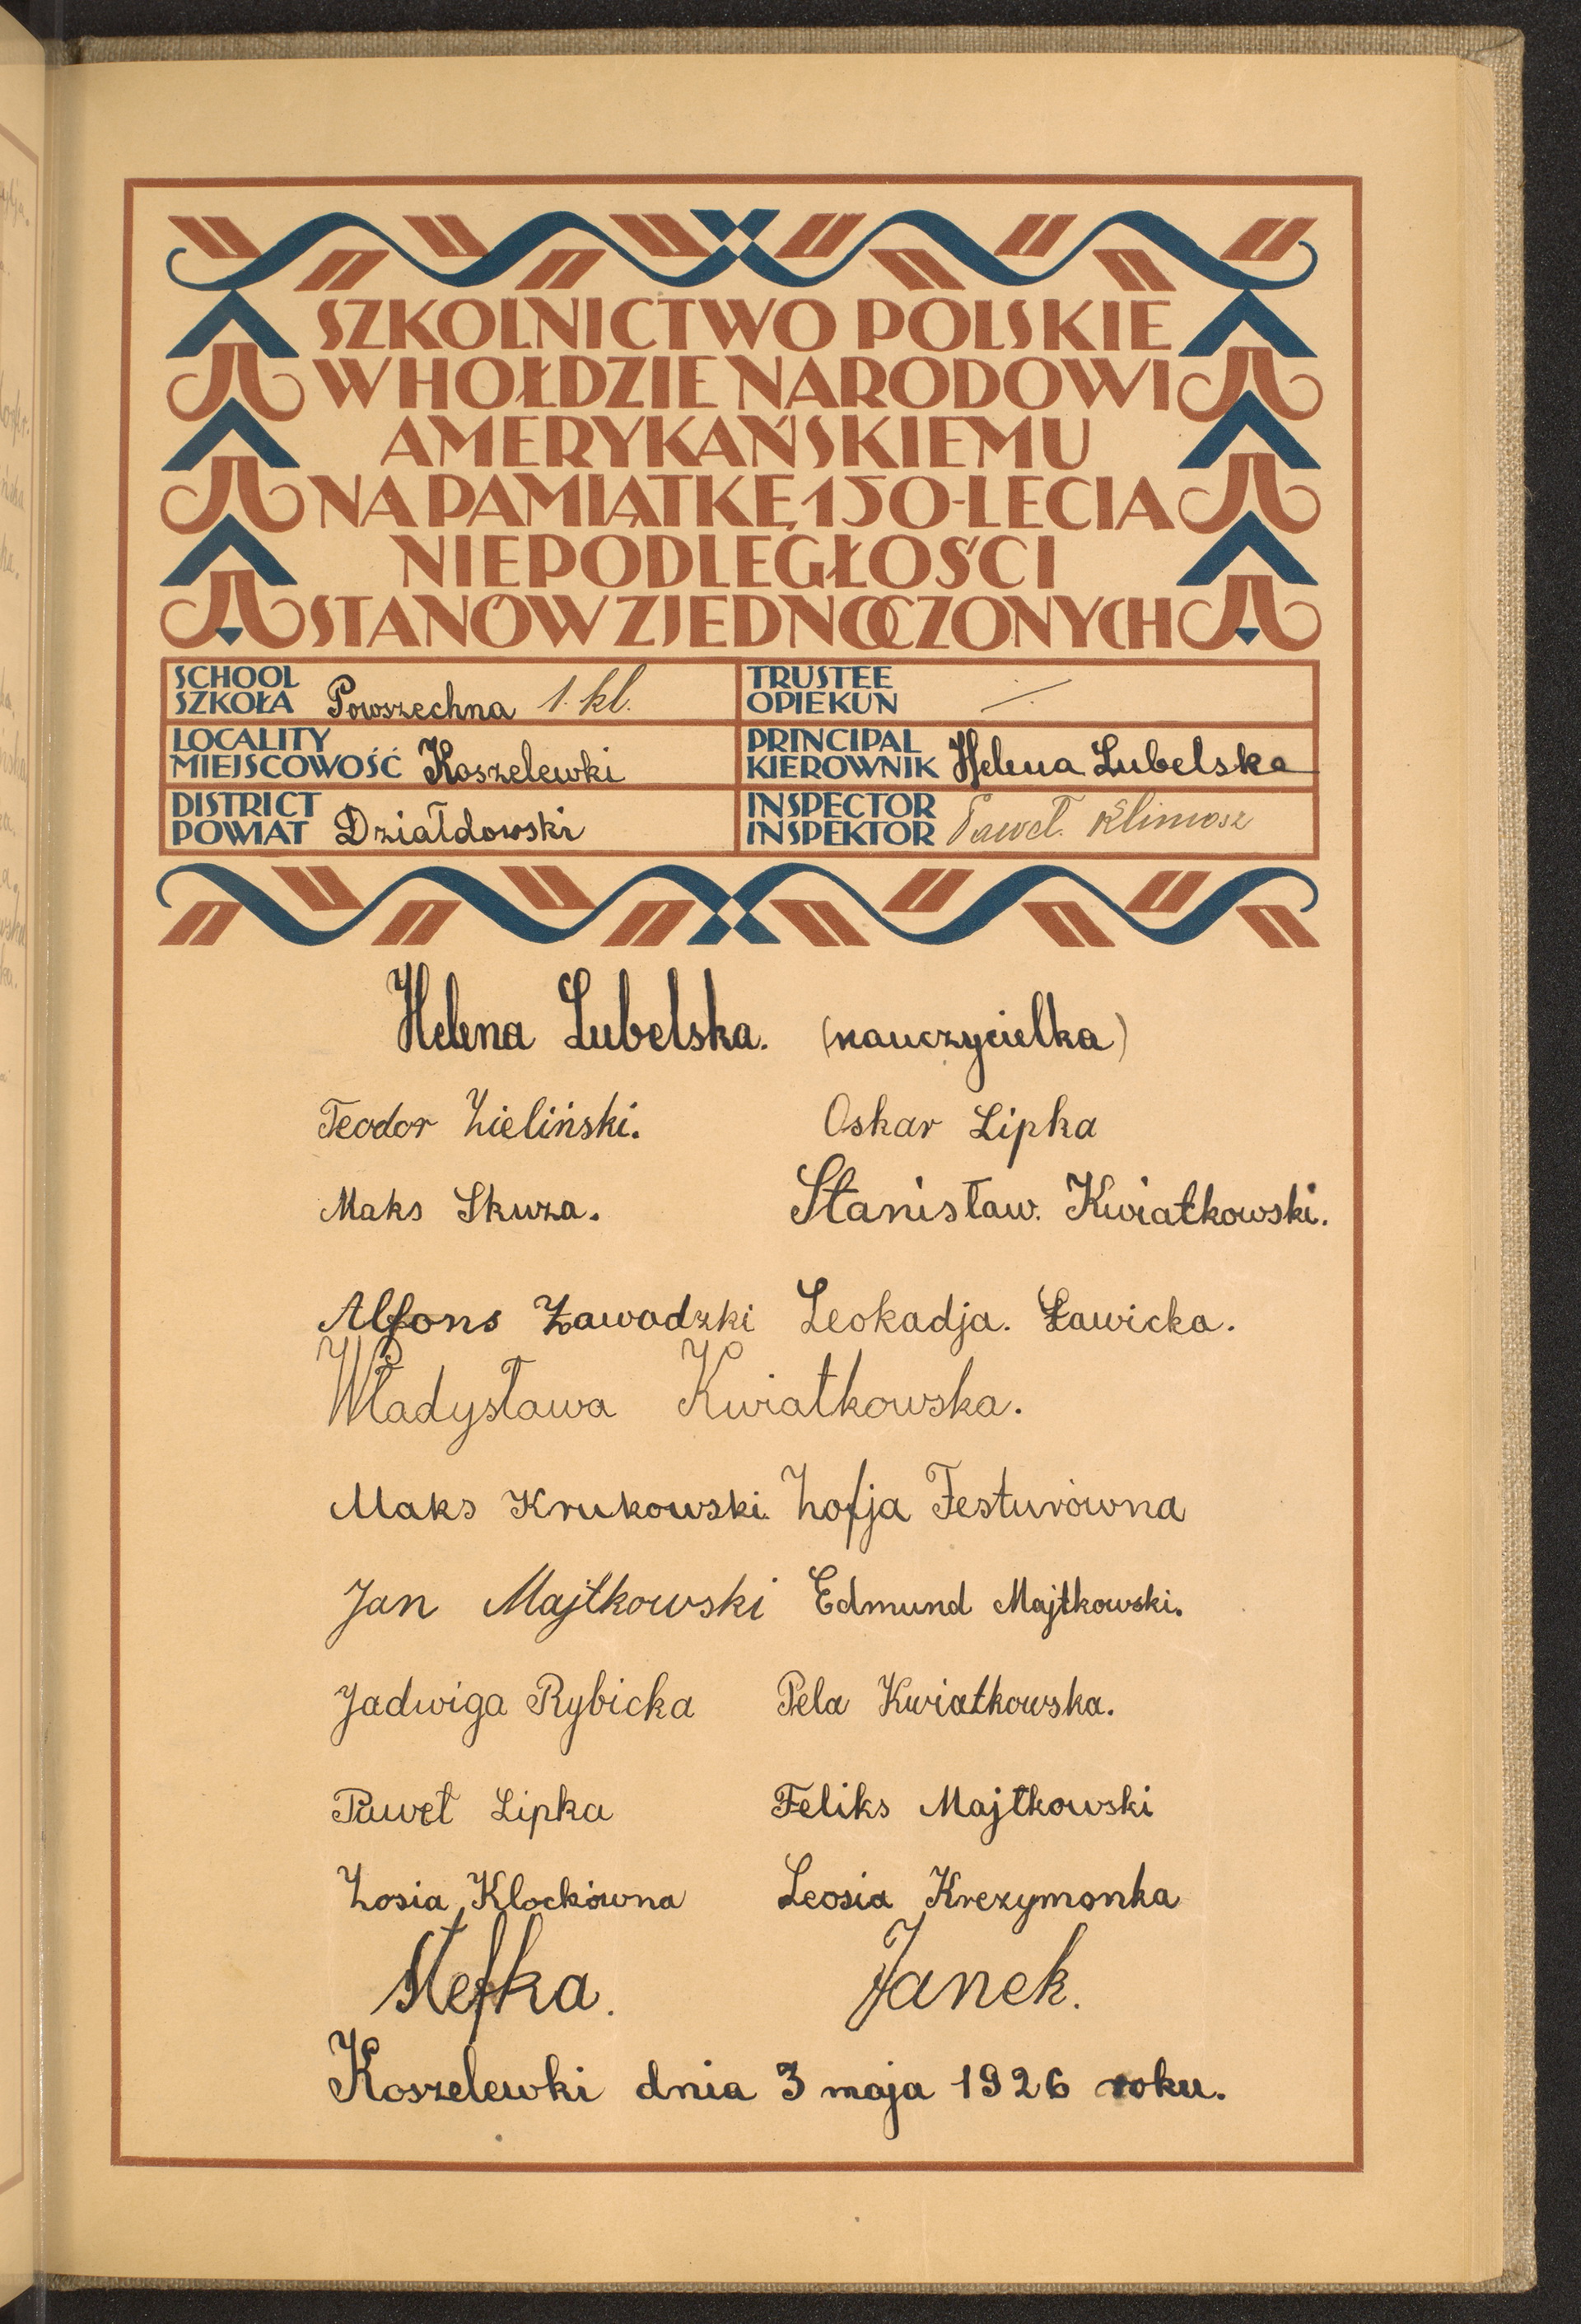 SZKOLNICTWO POLSKIE
W HOŁDZIE NARODOWI
AMERYKAŃSKIEMU
NA PAMIĄTKĘ 150-LECIA
NIEPODLEGŁOŚCI
STANÓW ZJEDNOCZONYCH
SCHOOL
SZKOŁA Powszechna 1. kl.
TRUSTEE
OPIEKUN —.
LOCALITY
MIEJSCOWOŚĆ Koszelewki
PRINCIPAL
KIEROWNIK Helena Lubelska
DISTRICT
POWIAT Działdowski
INSPECTOR
INSPEKTOR Paweł. Klimosz
Helena Lubelska. (nauczycielka)
Teodor Zieliński. Oskar Lipka
Maks Skuza. Stanisław. Kwiatkowski.
Alfons Zawadzki Leokadja. Ławicka.
Władysława Kwiatkowska.
Maks Krukowski. Zofja Festurówna
Jan Majtkowski Edmund Majtkowski.
Jadwiga Rybicka Pela Kwiatkowska.
Paweł Lipka Feliks Majtkowski
Zosia Klockówna Leosia Krezymonka
Stefka. Janek.
Koszelewki dnia 3 maja 1926 roku.